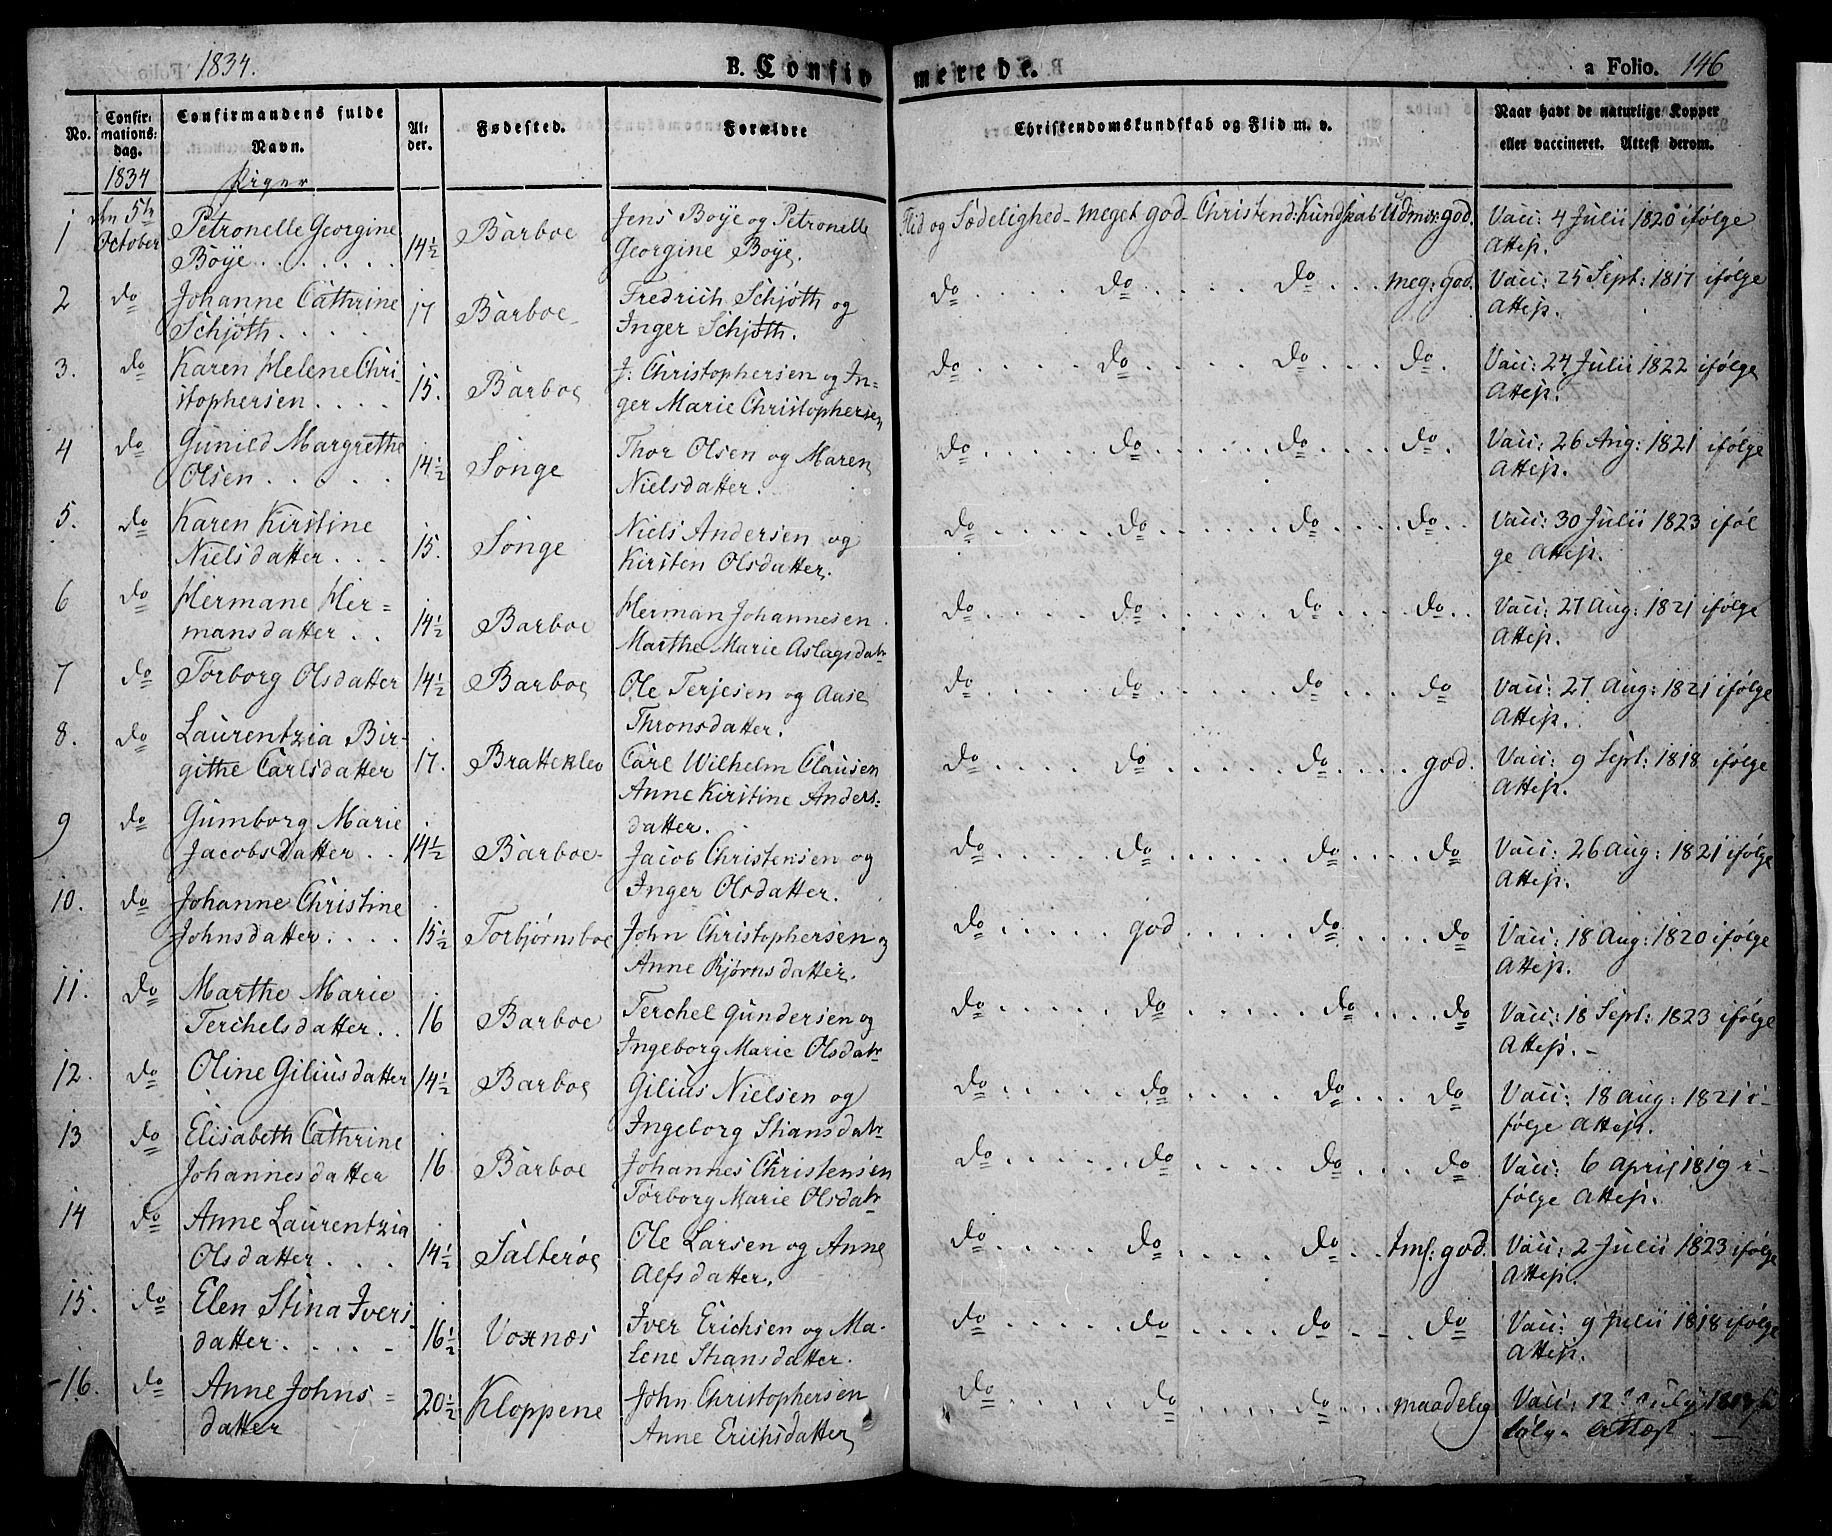 1834.
B. Confirmerede.
a Folio. 146
No. Confirmationsdag. Confirmandens fulde Navn. Alder. Fødested. Forældre Christendomskundskab og Flid m. v. Naar havt de naturlige Kopper eller vaccineret. Attest derom.
1834 Piger
1 den 5te October Petronelle Georgine Boÿe. 14½ Barboe Jens Boÿe og Petronelle Georgine Boÿe. Flid og Sædelighed - meget god - Christend: Kundskab Udmær: god. Vacc: 4 Julii 1820 ifølge Attest.
2 do Johanne Cathrine Schjøth. 17 Barboe Fredrich Schjøth og Inger Schjøth. do do do meg: god. Vacc: 25 Sept: 1817 ifølge Attest.
3. do Karen Helene Christophersen 15. Barboe J: Christophersen og Inger Marie Christophersen do do do do. Vacc: 24 Julii 1822 ifølge Attest.
4 do Gunild Margrethe Olsen 14½ Songe Thor Olsen og Maren Nielsdatter. do do do do. Vacc: 26 Aug: 1821 ifølge Attest.
5. do Karen Kirstine Nielsdatter 15. Songe Niels Andersen og Kirsten Olsdatter. do do do do Vacc: 30 Julii 1823 ifølge Attest.
6 do Hermane Hermansdatter 14½ Barboe Herman Johannesen Marthe Marie Aslagsdatr do do do do Vacc: 27 Aug: 1821 ifølge Attest.
7 do Torborg Olsdatter 14½ Barboe Ole Terjesen og Aase Thronsdatter. do do do do Vacc: 27 Aug: 1821 ifølge Attest.
8. do Laurentzia Birgithe Carlsdatter 17. Bratteklev Carl Wilhelm Clausen Anne Kirstine Andersdatter. do do do god. Vacc: 9 Sept: 1818 ifølge Attest.
9 do Gumborg Marie Jacobsdatter 14½ Barboe Jacob Christensen og Inger Olsdatter. do do do do Vacc: 26 Aug: 1821 ifølge Attest.
10. do Johanne Christine Johnsdatter 15½ Torbjørnsboe John Christophersen og Anne Bjørnsdatter. do god do do Vacc: 18 Aug: 1820 ifølge Attest.
11. do Marthe Marie Terchelsdatter 16 Barboe Terchel Gundersen og Ingeborg Marie Olsdatr do do do do Vacc: 18 Sept: 1823 ifølge Attest.
12. do Oline Giliusdatter 14½ Barboe Gilius Nielsen og Ingeborg Stiansdatr do do do do Vacc: 18 Aug: 1821 ifølge Attest.
13 do Elisabeth Cathrine Johannesdatter 16 Barboe Johannes Christensen Torborg Marie Olsdatr do do do do Vacc: 6 April 1819 ifølge Attest.
14 do Anne Laurentzia Olsdatter 14½ Salterøe Ole Larsen og Anne Alfsdatter. do do do tml: god. Vacc: 2 Julii 1823 ifølge Attest.
15. do Elen Stina Iversdatter 16½ Voxnæs Iver Erichsen og Malene Stiansdatter. do do do do Vacc: 9 Julii 1818 ifølge Attest.
16. do Anne Johnsdatter 20½ Kloppene John Christophersen Anne Erichsdatter do do do maadelig Vacc: 12